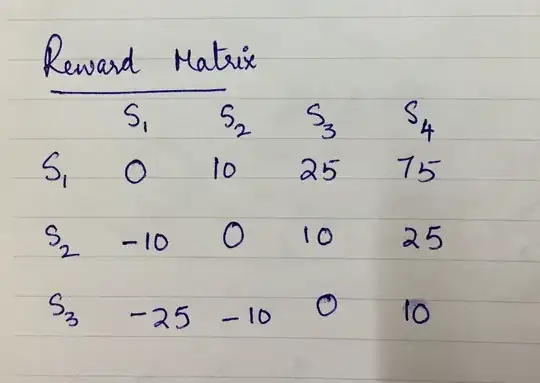 Reward Matrix
S₁ S₂ S₃ S₄
S₁ 0 10 25 75
S₂ -10 0 10 25
S₃ -25 -10 0 10